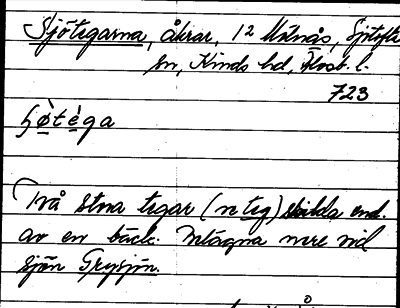 Sjötegarna, åkrar, 12 Månås, Sjötofta
sn, Kinds hd, Älvsb. l.
723
Två stora tegar (en teg) skilda end.
av en bäck. Belägna nere vid
sjön Grysjön.